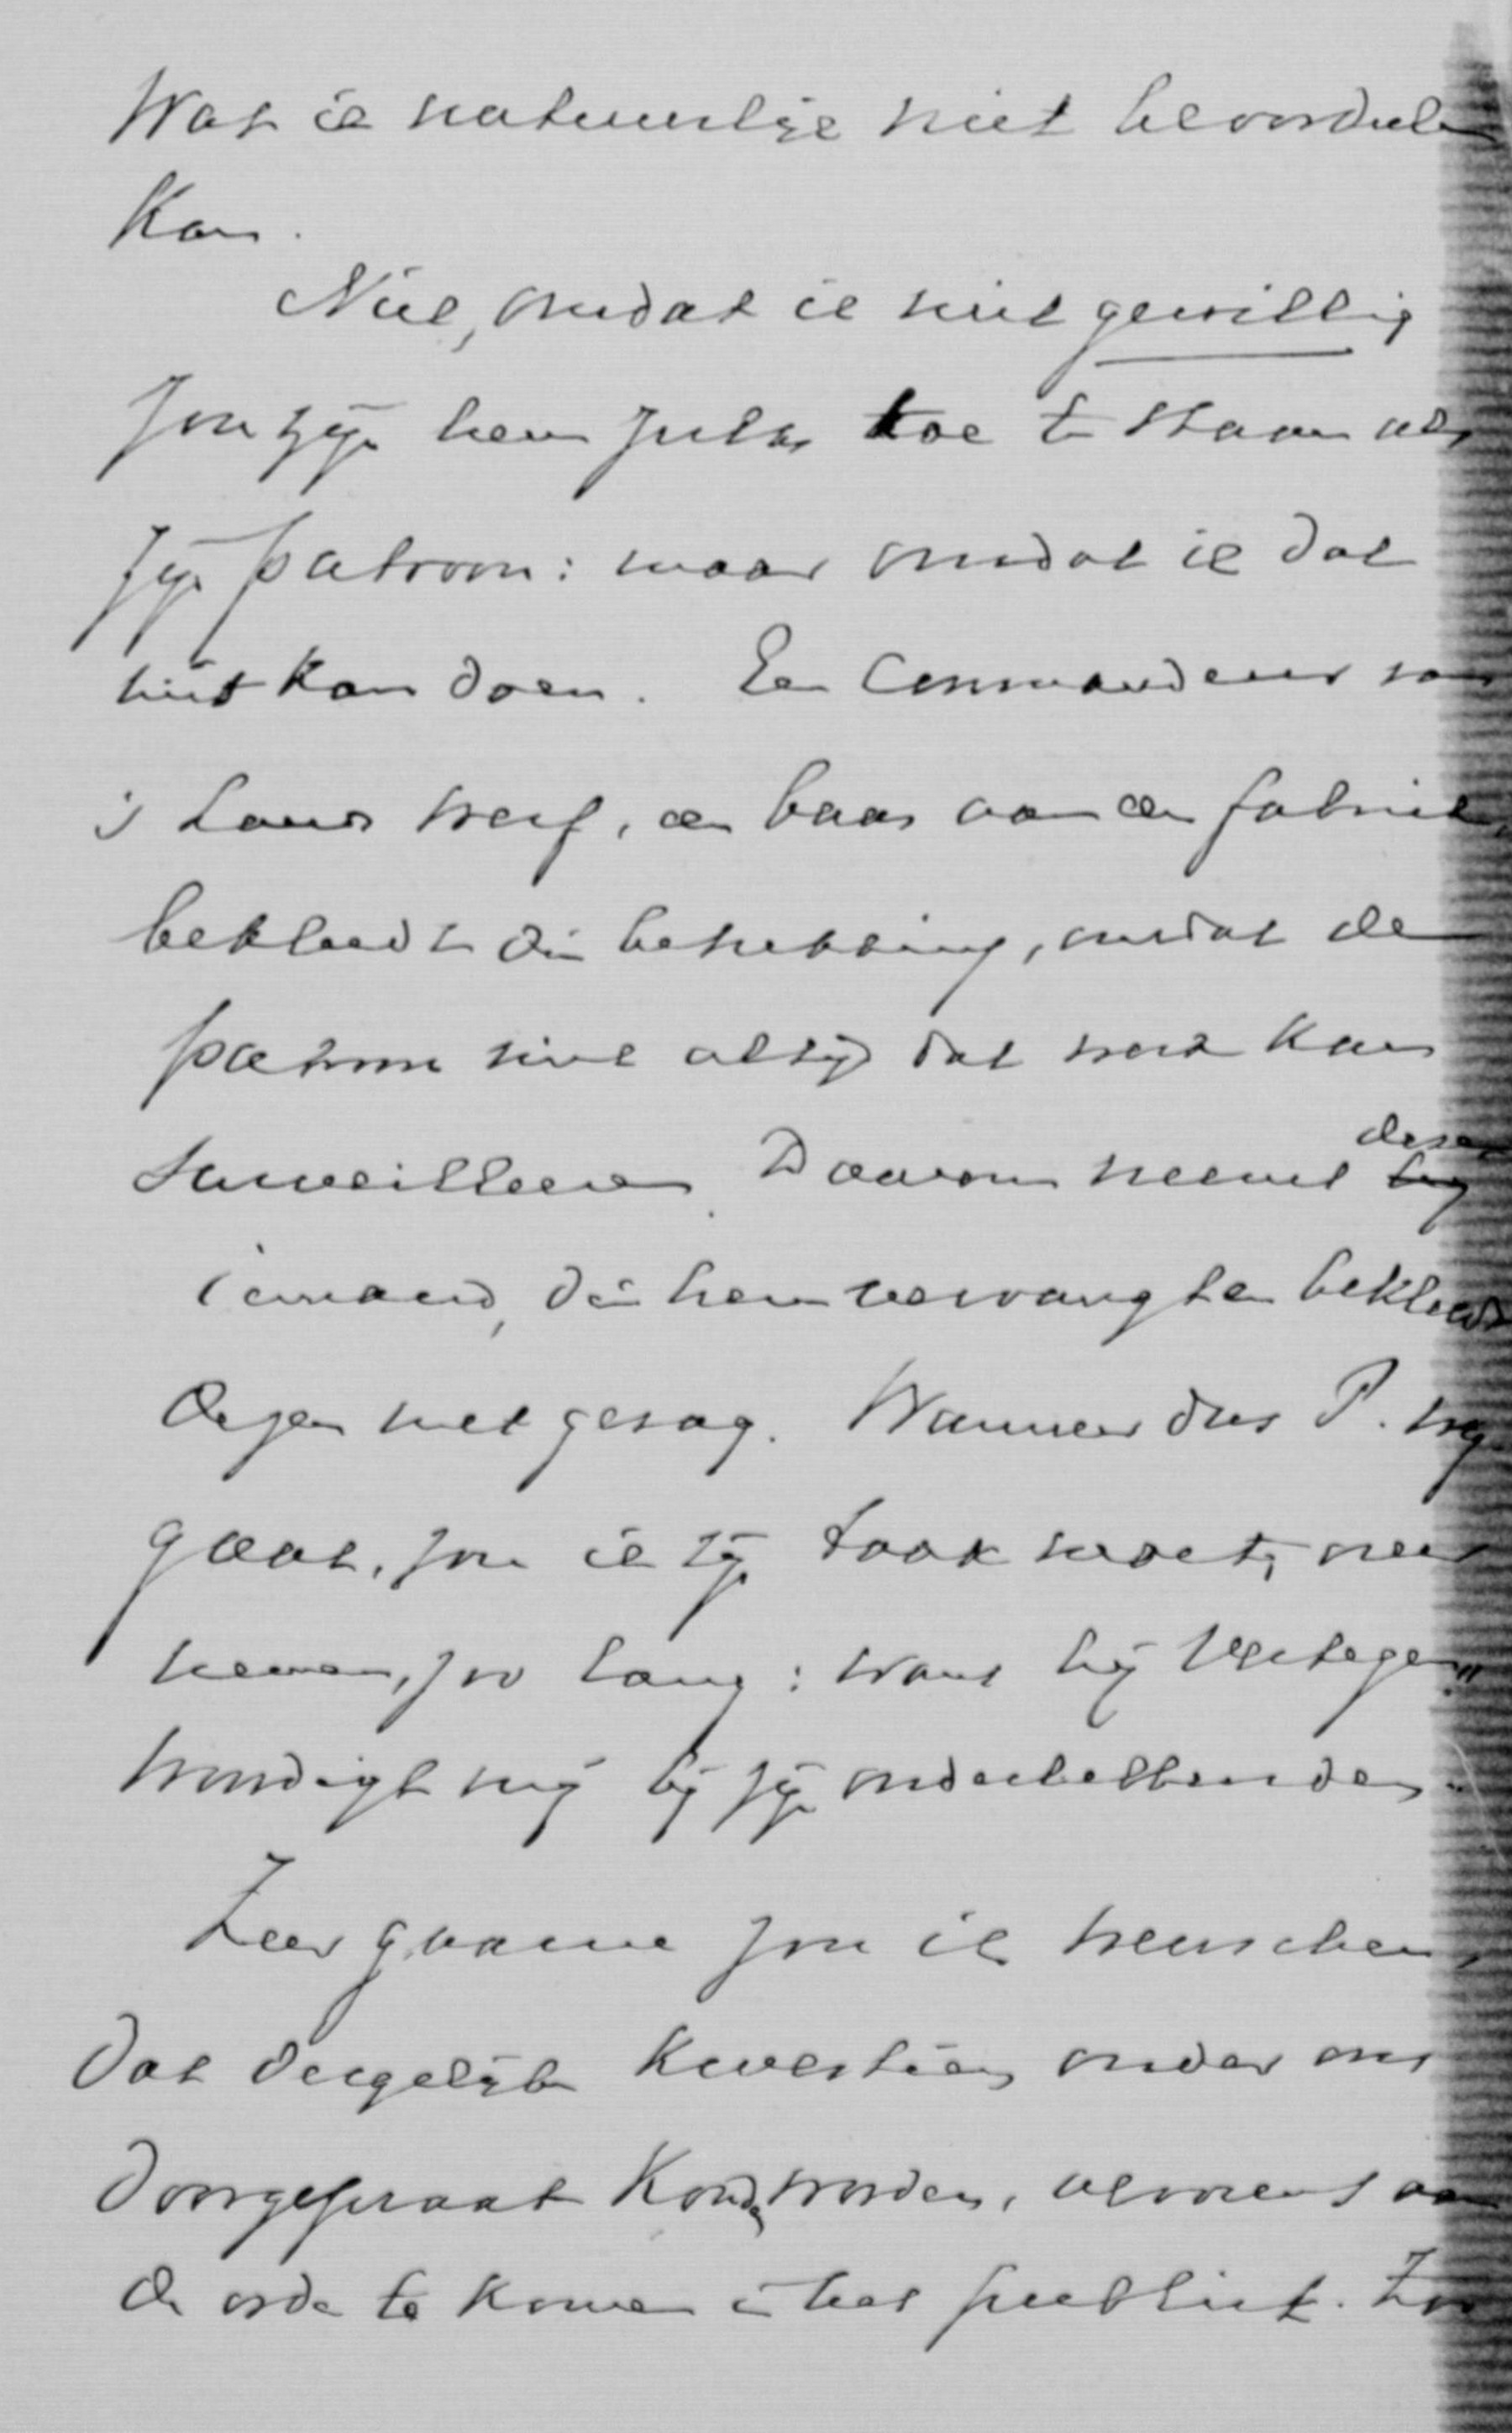 Wat ik natuurlijk niet beoordeelen
kan.
Niet, omdat ik niet gewillig
zou zijn hem zulks toe te staan als
zijn patroon: maar omdat ik dat
niet kan doen. Een Commandeur van
's Lands werf, een baas van een fabriek,
bekleedt die betrekking, omdat de
patroon niet altijd dat werk kan
surveilleeren. Daarom neemt hij deze
iemand, die hem vervangt en bekleedt
dezen met gezag. Wanneer dus P. weg
gaat, zou ik zijn taak moeten over
nemen, zoo lang: want hij vertegen„
woordigt mij bij zijn onderhebbenden.
Zeer gaarne zou ik wenschen,
dat dergelijke kwestien onder ons
doorgepraat konden worden, alvorens aan
de orde te komen in het publiek. Zoo